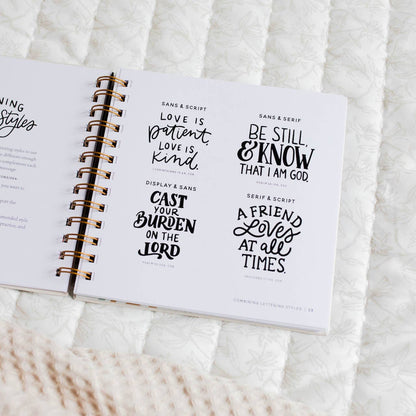 NING
Styles
SANS & SCRIPT
LOVE IS
patient,
LOVE IS
Kind.
SANS & SERIF
BE STILL,
& KNOW
THAT I AM GOD
DISPLAY & SANS
CAST
YOUR
BURDEN
ON THE
LORD
SERIF & SCRIPT
A FRIEND
Loves
AT all
TIMES.
COMBINING LETTERING STYLES | 23